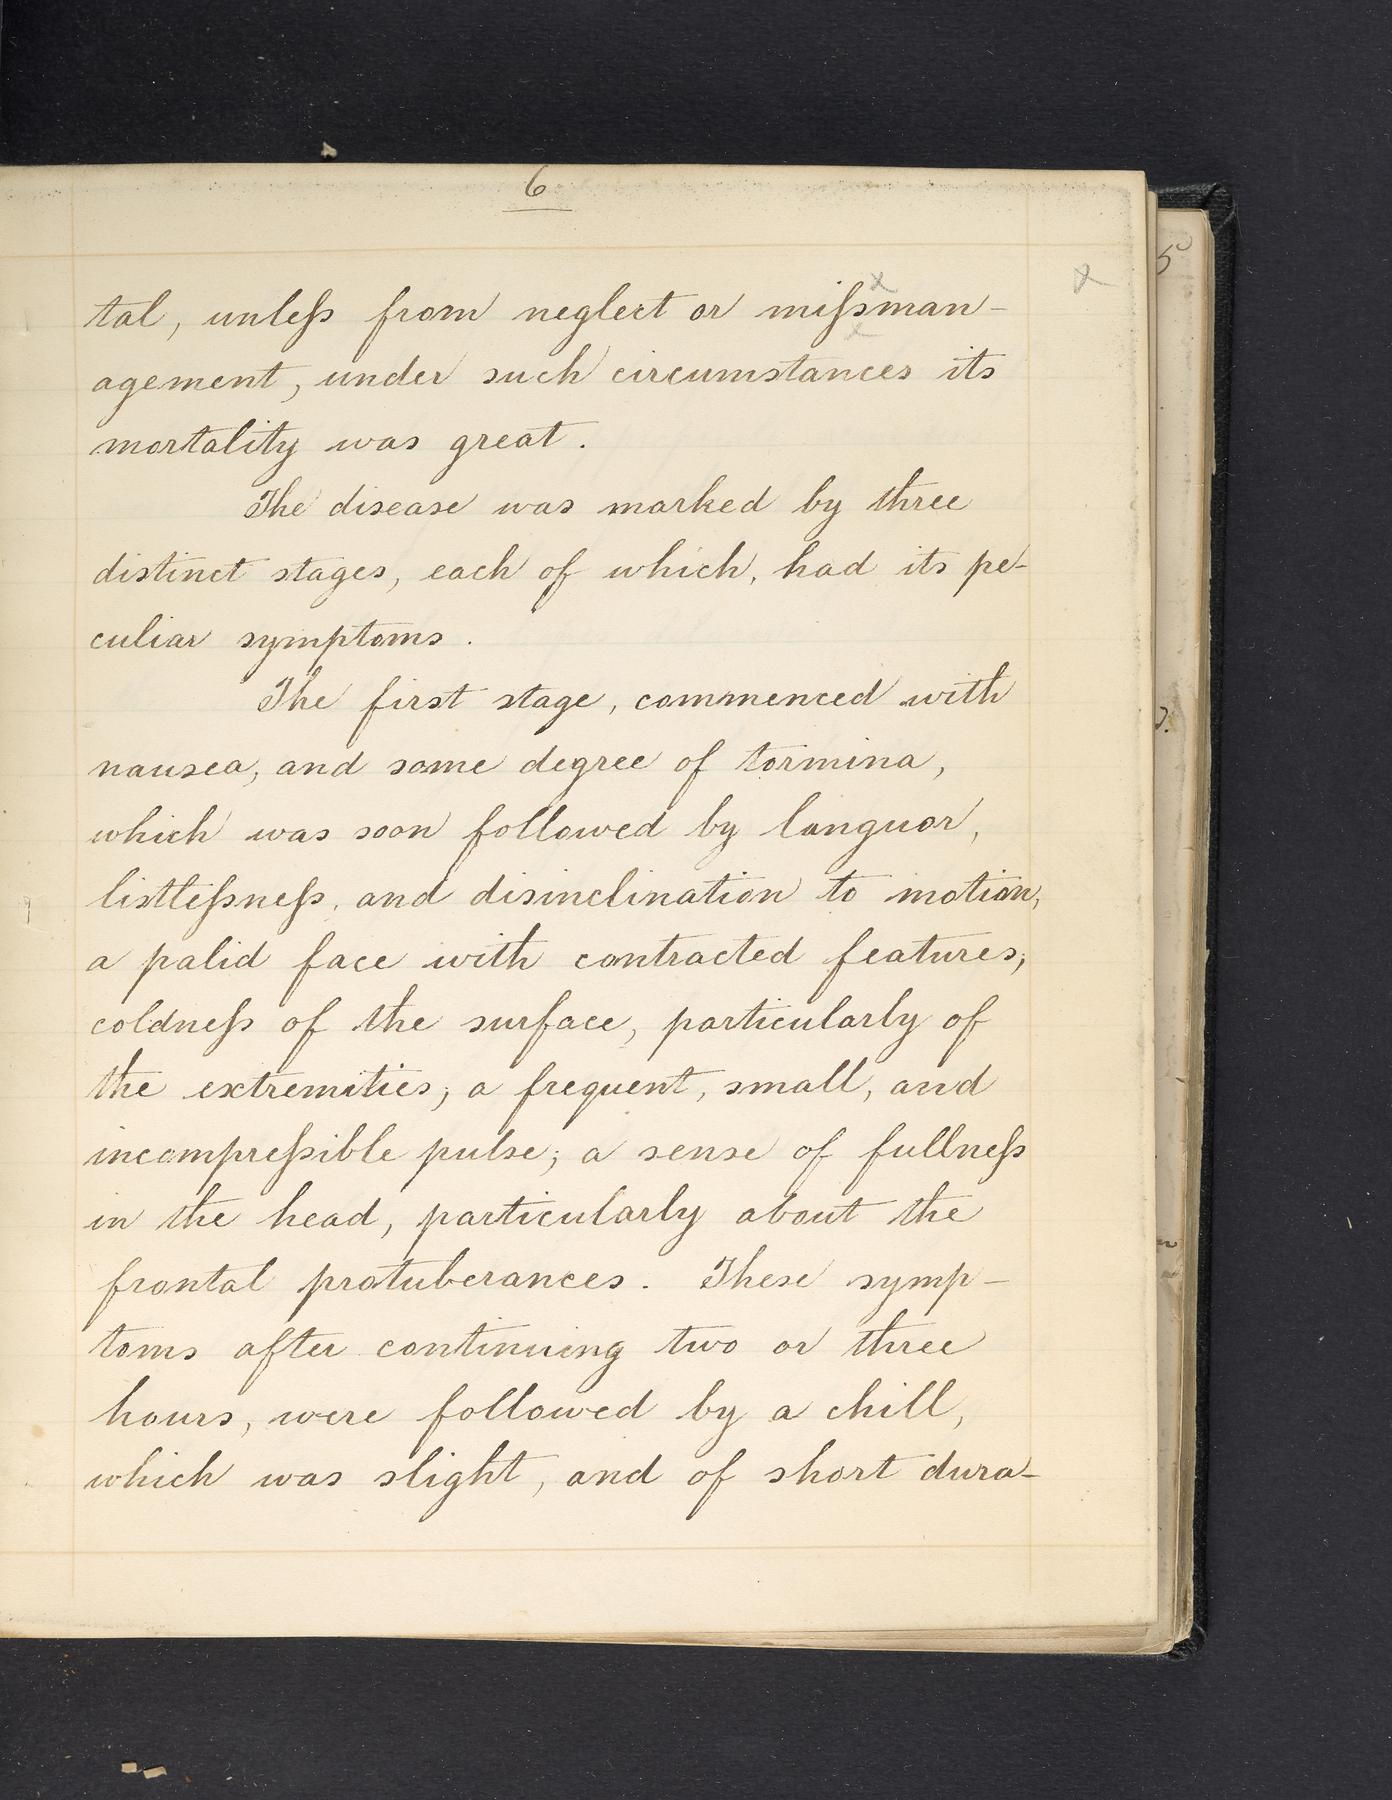 6
tal, unless from neglect or missman-
agement, under such circumstances its
mortality was great.
The disease was marked by three
distinct stages, each of which, had its pe-
culiar symptoms.
The first stage, commenced with
nausea, and some degree of tormina,
which was soon followed by languor,
listlessness, and disinclination to motion,
a palid face with contracted features,
coldness of the surface, particularly of
the extremities; a frequent, small, and
incompressible pulse; a sense of fullness
in the head, particularly about the
frontal protuberances. These symp-
toms after continuing two or three
hours, were followed by a chill,
which was slight, and of short dura-